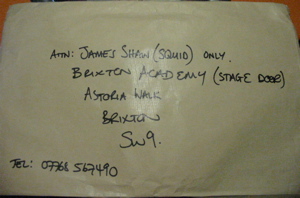 ATN: JAMES SHAW (SQUID) ONLY.
BRIXTON ACADEMY (STAGE DOOR)
ASTORIA WALK
BRIXTON
SW9.
TEL: 07768 567490